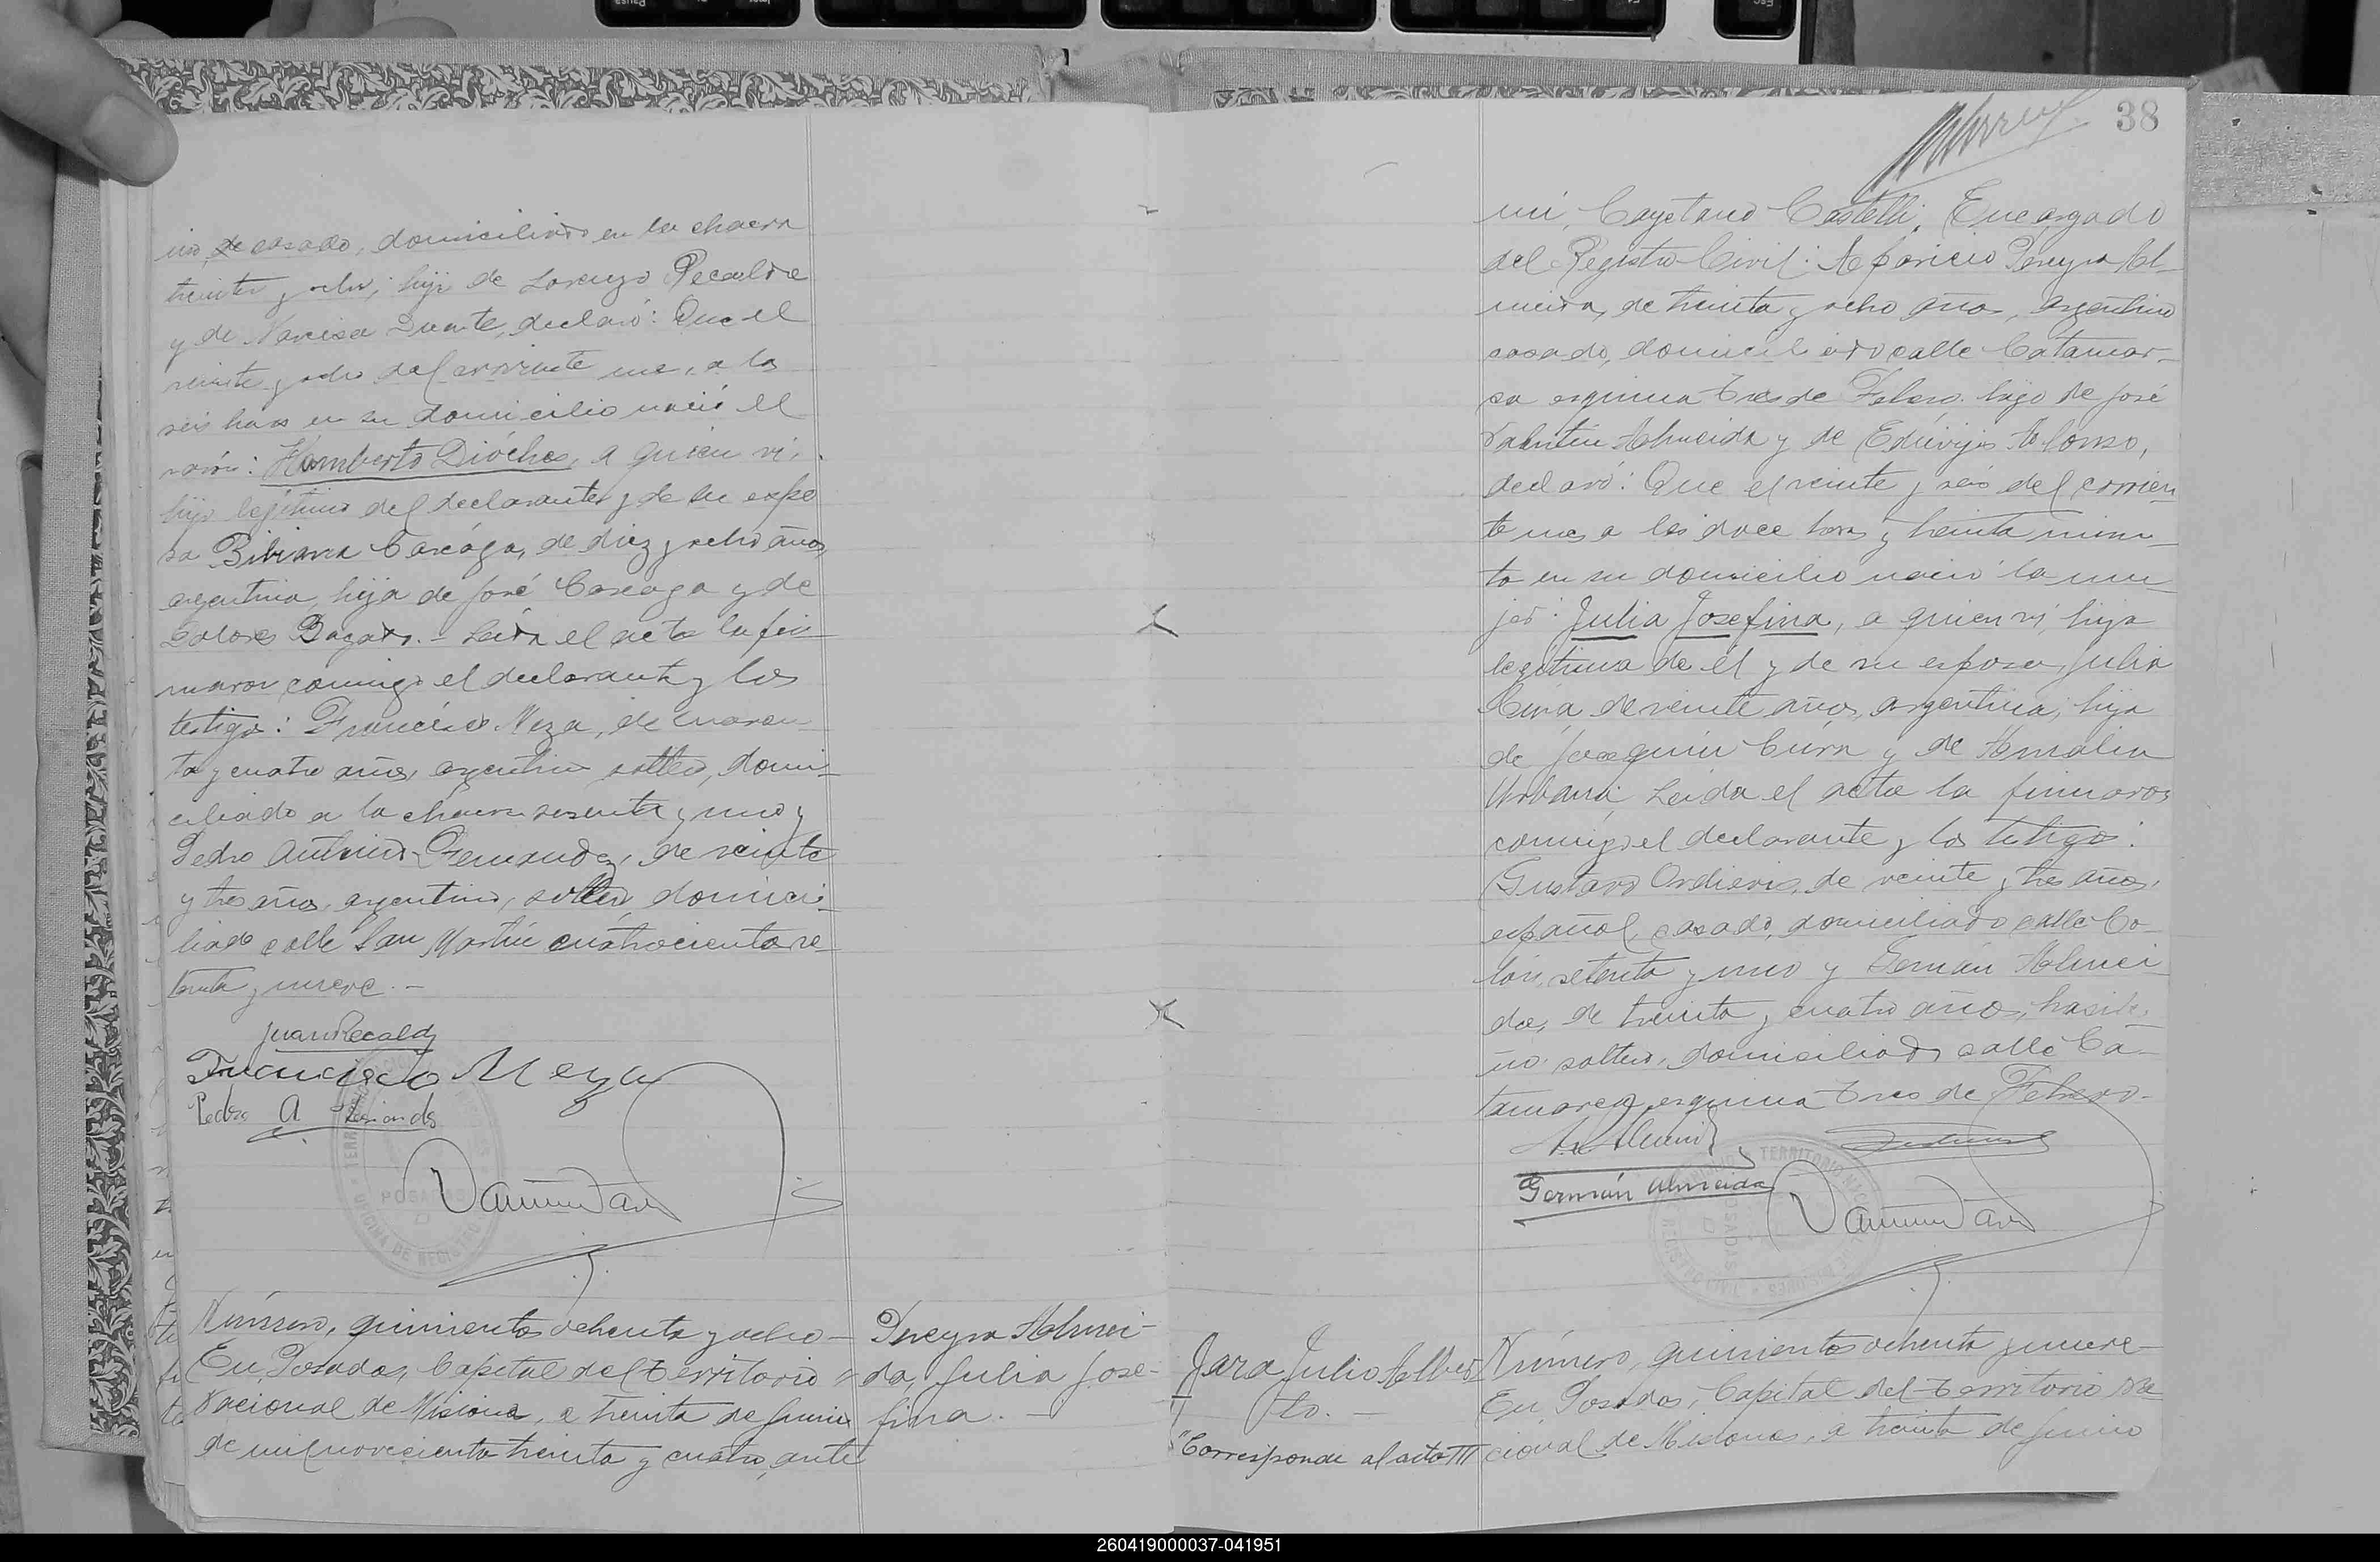 ino, casado, domiciliado en la chacra
treinta y ocho, hijo de Lorenzo Recalde
y de Narcisa Duarte, declaró: Que el
veinte y ocho del corriente mes, a las
seis horas en su domicilio nació el
varón: Humberto Dióches, a quien vi,
hijo legítimo del declarante y de su espo
sa Bibiana Careaga, de diez y ocho años,
argentina, hija de José Careaga y de
Dolores . - Leída el acta la fir-
maron conmigo el declarante y los
testigos: Francisco Meza, de cuaren-
ta y cuatro años, argentino soltero, domi-
ciliado a la chacra sesenta y uno y
Pedro Antonio Fernandez, de veinte
y tres años, argentino, soltero, domici-
liado calle San Martín cuatrocientos se
tenta y nueve. -
Juan Recalde
Francisco Meza
Pedro A
POSADAS
OFICINA DE REGISTRO
Número, quinientos ochenta y ocho -
En Posadas, Capital del Territorio
Nacional de Misiones, a treinta de Junio
de mil novecientos treinta y cuatro, ante
Pereyra Almei-
da, Julia Jose-
fina. -
38
mí, Cayetano Castelli, Encargado
del Registro Civil: Aparicio Pereyra Al-
meida, de treinta y ocho años, argentino
casado, domiciliado calle Catamar-
ca esquina Tres de Febrero, hijo de José
Valentín Almeida y de Edúvijis Alonso,
declaró: Que el veinte y seis del corrien
te mes a las doce horas y treinta minu-
to en su domicilio nació la mu-
jer: Julia Josefina, a quien vi, hija
legítima de él y de su esposa Julia
Cúra de veinte años, argentina, hija
de Joaquín Cúra y de Amalia
Urbana; Leida el acta la firmaron
conmigo el declarante y los testigos:
Gustavo , de veinte y tres años,
español, casado, domiciliado calle Co-
lón, setenta y uno y Germán Almei
da, de treinta y cuatro años, brasile-
ño soltero, domiciliado calle Ca-
tamarca esquina Tres de Febrero.
Germán Almeida
TERRITORIO NACIONAL DE MISIONES
POSADAS
Jara Julio Alber
to. -
"Corresponde al acta
Número, quinientos ochenta y nueve -
En Posadas, Capital del Territorio Na
cional de Misiones, a treinta de Junio
260419000037-041951